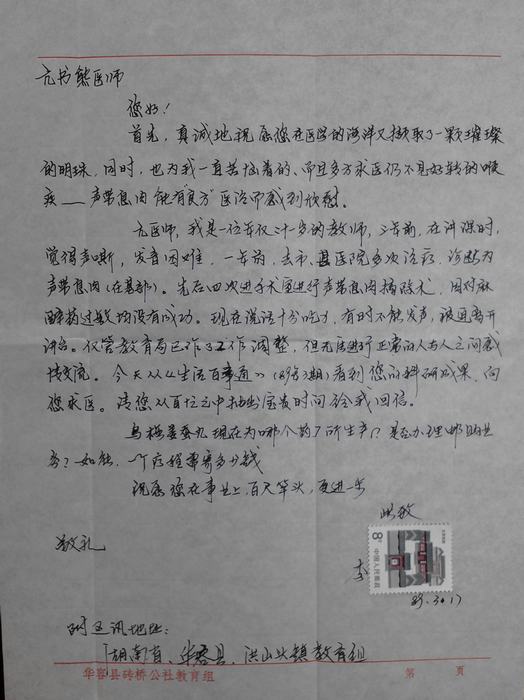 亢书熊医师
您好！
首先，真诚地祝愿您在医学的海洋又撷取了一颗璀璨
的明珠，同时，也为我一直苦恼着的、而且多方求医仍不见好转的喉
疾——声带息肉能有"良方"医治而感到欣慰。
亢医师，我是一位年仅二十岁的教师，三年前，在讲课时，
觉得声嘶，发音困难，一年前，去市、县医院多次治疗，诊断为
声带息肉(在基部)。先后四次进手术室进行声带息肉摘除术，因对麻
醉药过敏均没有成功。现在说话十分吃力，有时不能发声，被迫离开
讲台。仅管教育局已作了工作调整，但无法进行正常的人与人之间感
情交流。今天从《生活百事通》(89年3期)看到您的科研成果，向
您求医。请您从百忙之中抽出宝贵时间给我回信。
乌梅姜蚕丸现在为哪个药厂所生产？是否办理邮购业
务？如能，一个疗程需寄多少钱
祝愿您在事业上，百尺竿头，更进一步
此致
敬礼
李
8分
中国人民邮政
89.3.17
附通讯地址：
湖南省、华容县、洪山头镇教育组
华容县砖桥公社教育组
第 页